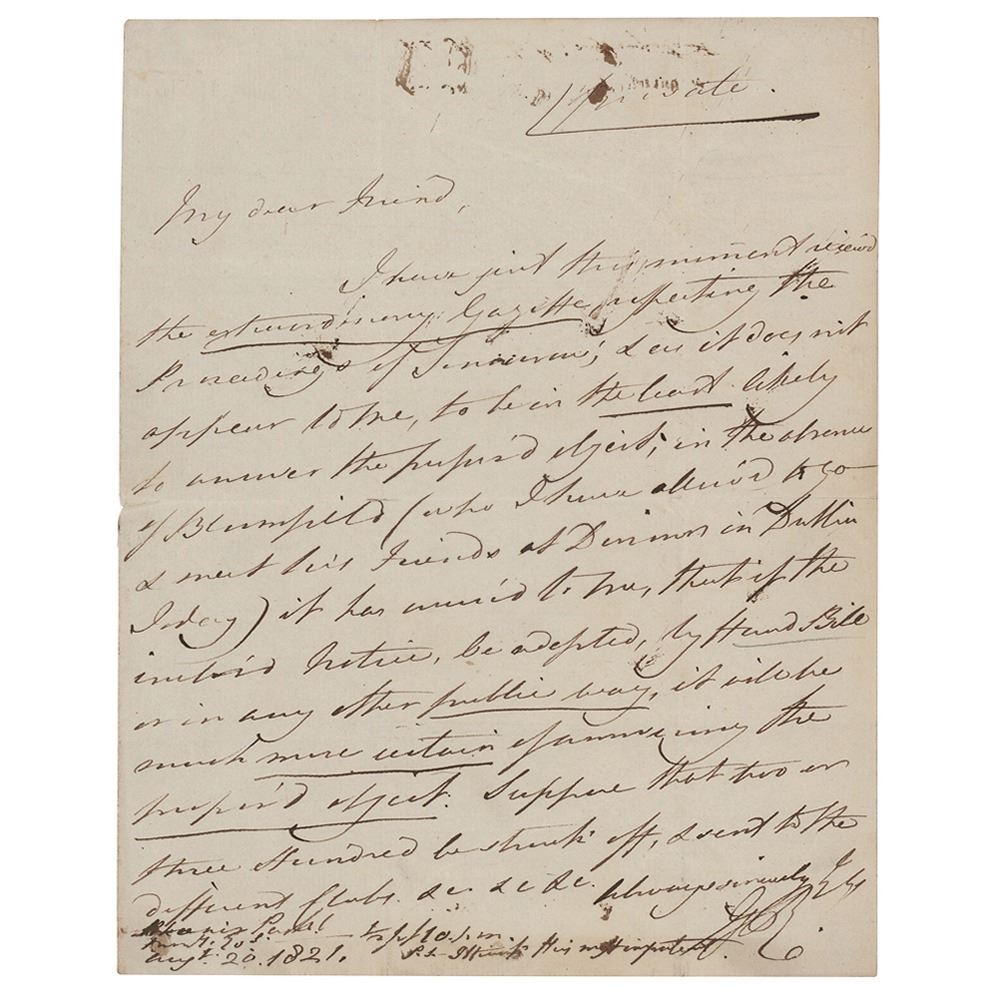 Private.
My dear Friend,
I have just this moment receiv'd
the extraordinary Gazette, respecting the
Proceedings of Tomorrow; & as it does not
appear to Me, to be in the least likely
to answer the propos'd object; in the absence
of Bloomfield (who I have allow'd to go
& meet his Friends at Dinner in Dublin
Today) it has occurr'd to me, that if the
inclos'd Notice, be adopted, by Hand Bill
or in any other public way, it will be
much more certain of answering the
propos'd object. Suppose that two or
three Hundred be struck off, & sent to the
different Clubs. &c. &c. &c. Always sincerely Yrs
GR.
Phoenix Park
augt. 20. 1821. P.S. I think this most important.